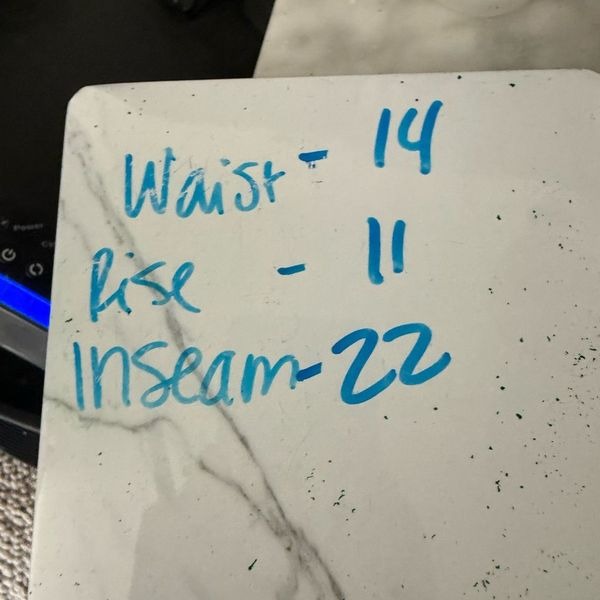 Waist - 14
Rise - 11
Inseam - 22
Power